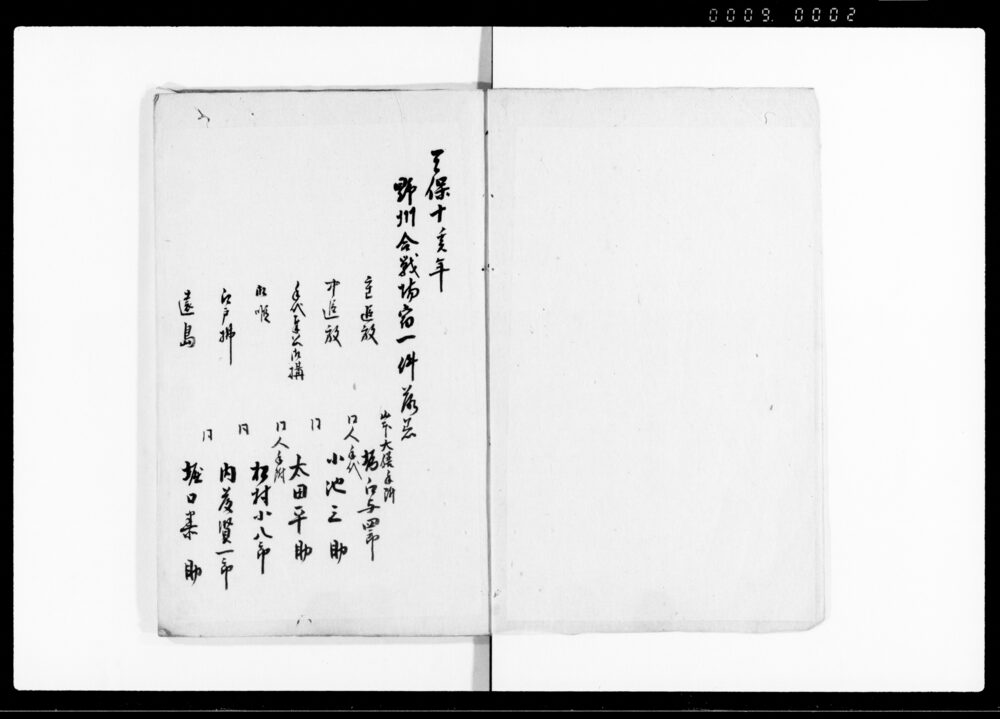 0009. 0002
天保十亥年
野州合戦場宿一件落着
重追放
山下大膳手附
橋白与四郎
中追放
同人手代
小池三助
手代奉公御構
同
太田平助
押込
同人手附
松村小八郎
江戸拂
同
内藤賢一郎
遠島
同
堀口泰助